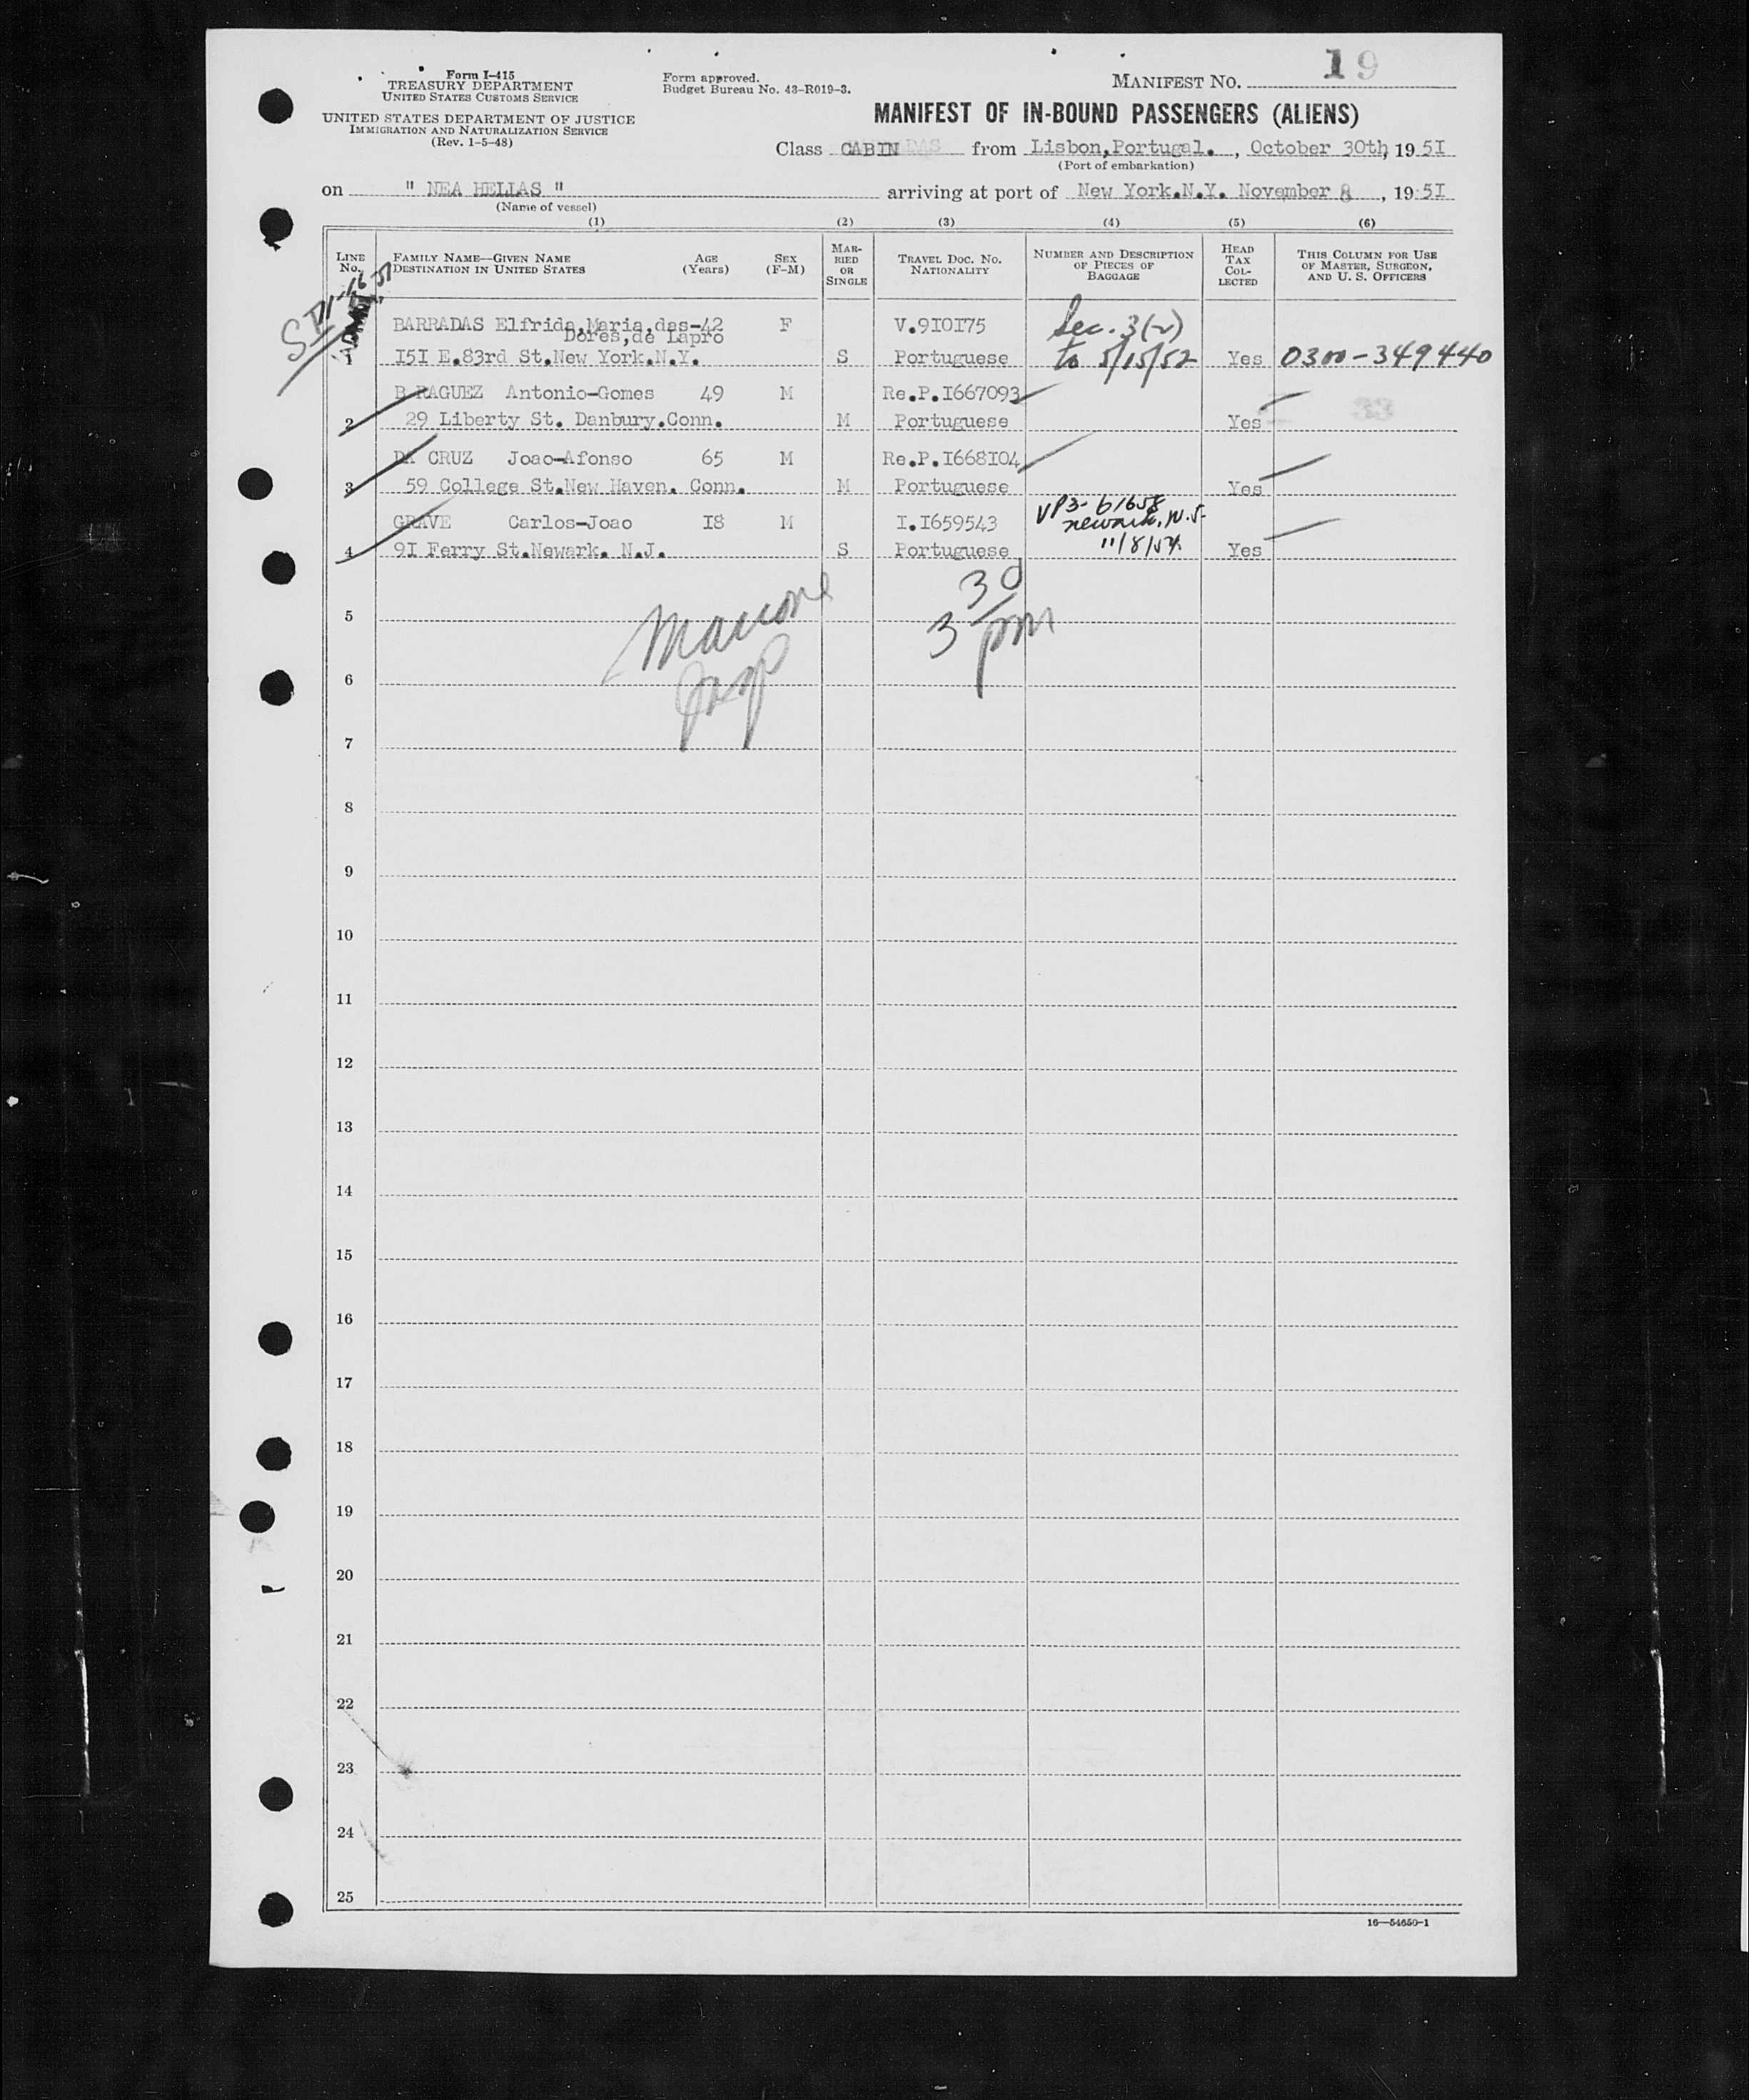 Form I-415
TREASURY DEPARTMENT
UNITED STATES CUSTOMS SERVICE
UNITED STATES DEPARTMENT OF JUSTICE
IMMIGRATION AND NATURALIZATION SERVICE
(Rev. 1-5-48)
Form approved.
Budget Bureau No. 43-R019-3.
MANIFEST NO. 19
MANIFEST OF IN-BOUND PASSENGERS (ALIENS)
Class CABIN from Lisbon,Portugal. , October 30th, 1951
(Port of embarkation)
on " NEA HELLAS " arriving at port of New York.N.Y. November 8 , 1951
(Name of vessel)
(1) (2) (3) (4) (5) (6)
LINE NO. FAMILY NAME—GIVEN NAME DESTINATION IN UNITED STATES AGE (Years) SEX (F-M) MARRIED OR SINGLE TRAVEL DOC. NO. NATIONALITY NUMBER AND DESCRIPTION OF PIECES OF BAGGAGE HEAD TAX COLLECTED THIS COLUMN FOR USE OF MASTER, SURGEON, AND U. S. OFFICERS
SI
BARRADAS Elfrida,Maria,das-42 F V.910175 Sec. 3(2)
Dores,de Lapro
1 151 E.83rd St.New York.N.Y. S Portuguese to 5/15/52 Yes 0300-349440
B RAGUEZ Antonio-Gomes 49 M Re.P.I667093
2 29 Liberty St. Danbury.Conn. M Portuguese Yes 33
DA CRUZ Joao-Afonso 65 M Re.P.I668104
3 59 College St.New Haven. Conn. M Portuguese Yes
GRAVE Carlos-Joao 18 M I.I659543 VP3-61658
newark, N.J.
4 91 Ferry St.Newark. N.J. S Portuguese 11/8/54 Yes
3 30 pm
5
6
7
8
9
10
11
12
13
14
15
16
17
18
19
20
21
22
23
24
25
16—54650-1